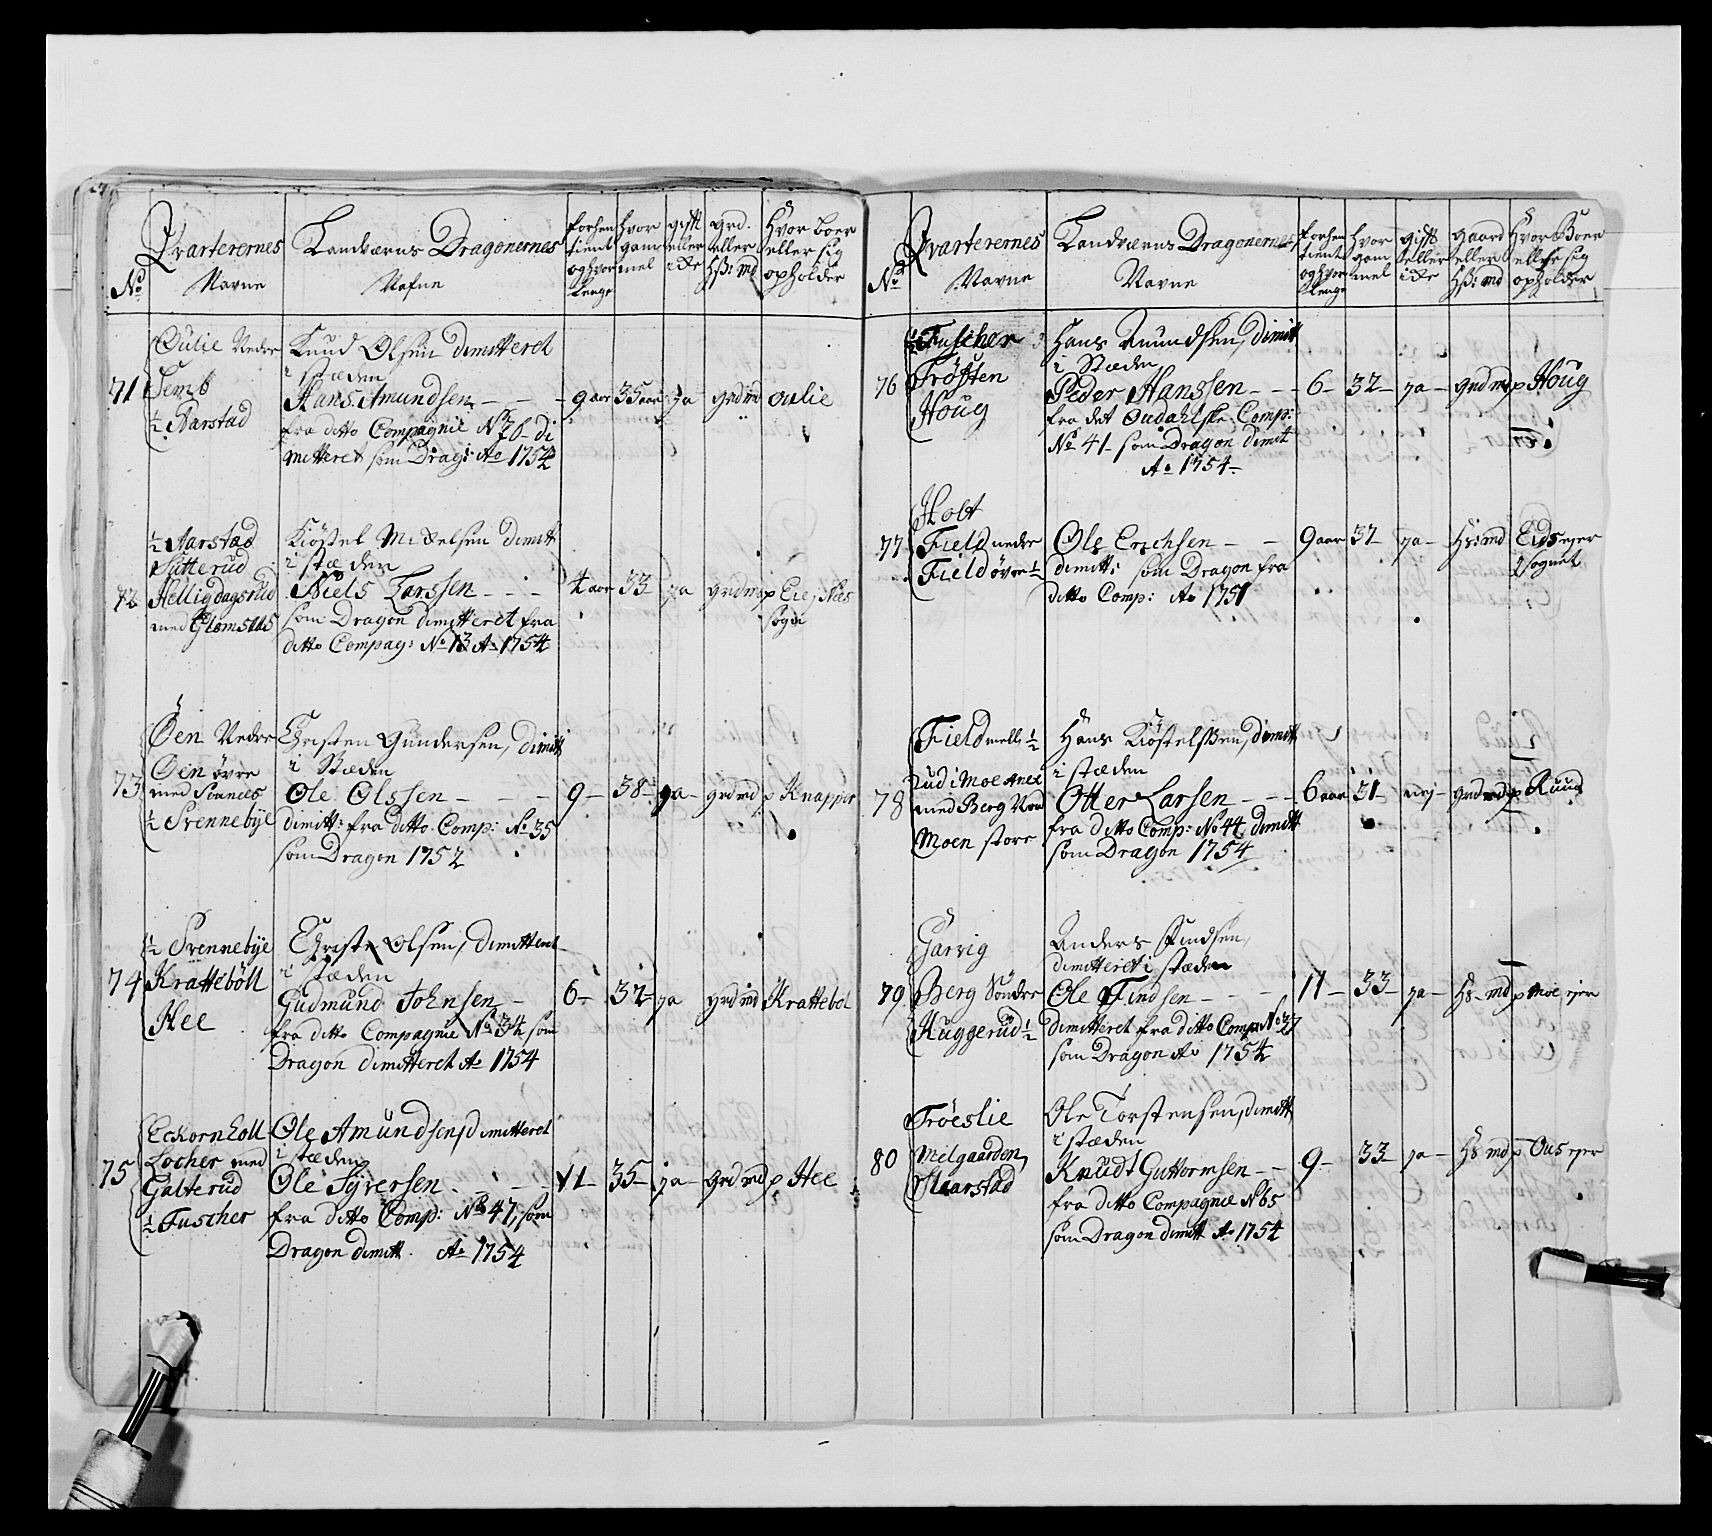 No
Qvarterernes
Navne
Landværns Dragonernes
Nafne
forhen
tient
og hvor
lenge
hvor
gam
mel
gift
eller
icke
grd.
eller
hß: md
Hvor boer
eller sig
opholder
71
Oulie Neder
Semb
½ Aarstad
Knud Olsen dimitteret
i stæden
Hans Amundsen - - -
fra ditto Compagnie No 76 di
mitteret som Drag: Ao 1754
9 aar
35 aar
ja
grd md
oulie
72
½ Aarstad
Sutterud
Helligdagsrud
med Glomsaas
Kiöstel Michelsen dimitt
i stæden
Niels Larssen - - -
som Dragon dimitteret fra
ditto Compag: No 13 Ao 1754
4 aar
33
ja
grd md
p Eie, Nes
sogn
73
Öen Neder
Öen øvre
med Sonnes
½ Svennebye
Christen Gundersen, dimitt
i Stæden
Ole Olssen - - -
dimitt: fra ditto Comp: No 35
som Dragon 1752
9 -
38 -
ja -
grd md
p Knapper
74
½ Svennebye
Krattebøll
Hee
Christen Olsen, dimitteret
i stæden
Gudmund Johnsen -
fra ditto Compagnie No 34 som
Dragon dimitteret Ao 1754
6 -
32 -
ja
grd md
p Krattebøl
75
Eckornholl
Locher med
Galterud
½ Fuscher
Ole Amundsen, dimitteret
i stæden
Ole Syversen - - -
fra ditto Comp: No 47, som
Dragon dimitt. Ao 1754
11 -
35 -
ja -
grd md
p Hee
No
Qvarterernes
Navne
Landværns Dragonernes
Navne
forhen
tient
og hvor
lenge
hvor
gam
mel
gift
eller
icke
gaard
eller
Hß: md
Hvor Boer
eller sig
opholder
76
½ Fuscher
Frösten
Houg
Hans Amundsen, dimitt
i Stæden
Peder Hanssen - - -
fra det Oudahlske Comp:
No 41 - som Dragon dimit
Ao 1754 -
6 -
32 -
ja -
grd md
p Houg
77
Holt
Field neder
Field øvre ½
Ole Erichsen - -
dimitt: som Dragon fra
ditto Comp: Ao 1751
9 aar
37
ja -
Hß: md
Eids ejer
sognet
78
Field mell ½
Rud i Moe Anex
med Berg Nord
Moen store
Hans Kiöstelssen, dimitt
i stæden
Otter Larsen - - -
fra ditto Comp: No 44, dimitt
som Dragon 1754
6 aar
31 -
nej -
grd md
p Ruud
79
Garvig
Berg Sönder
Huggerud ½
Anders Findsen,
dimitteret i stæden
Ole Findsen - - -
dimitteret fra ditto Comp: No 27
som Dragon Ao 1754
11 -
33 -
ja -
Hß - md
p moe ejer
80
Fröeslie
Melgaarden,
Skarstad
Ole Torstensen, dimitt
i stæden
Knudt Guttormsen - -
fra ditto Compagnie No 65
som Dragon dimitt Ao 1754
9 -
33 -
ja -
Hß md
p Ous ejer